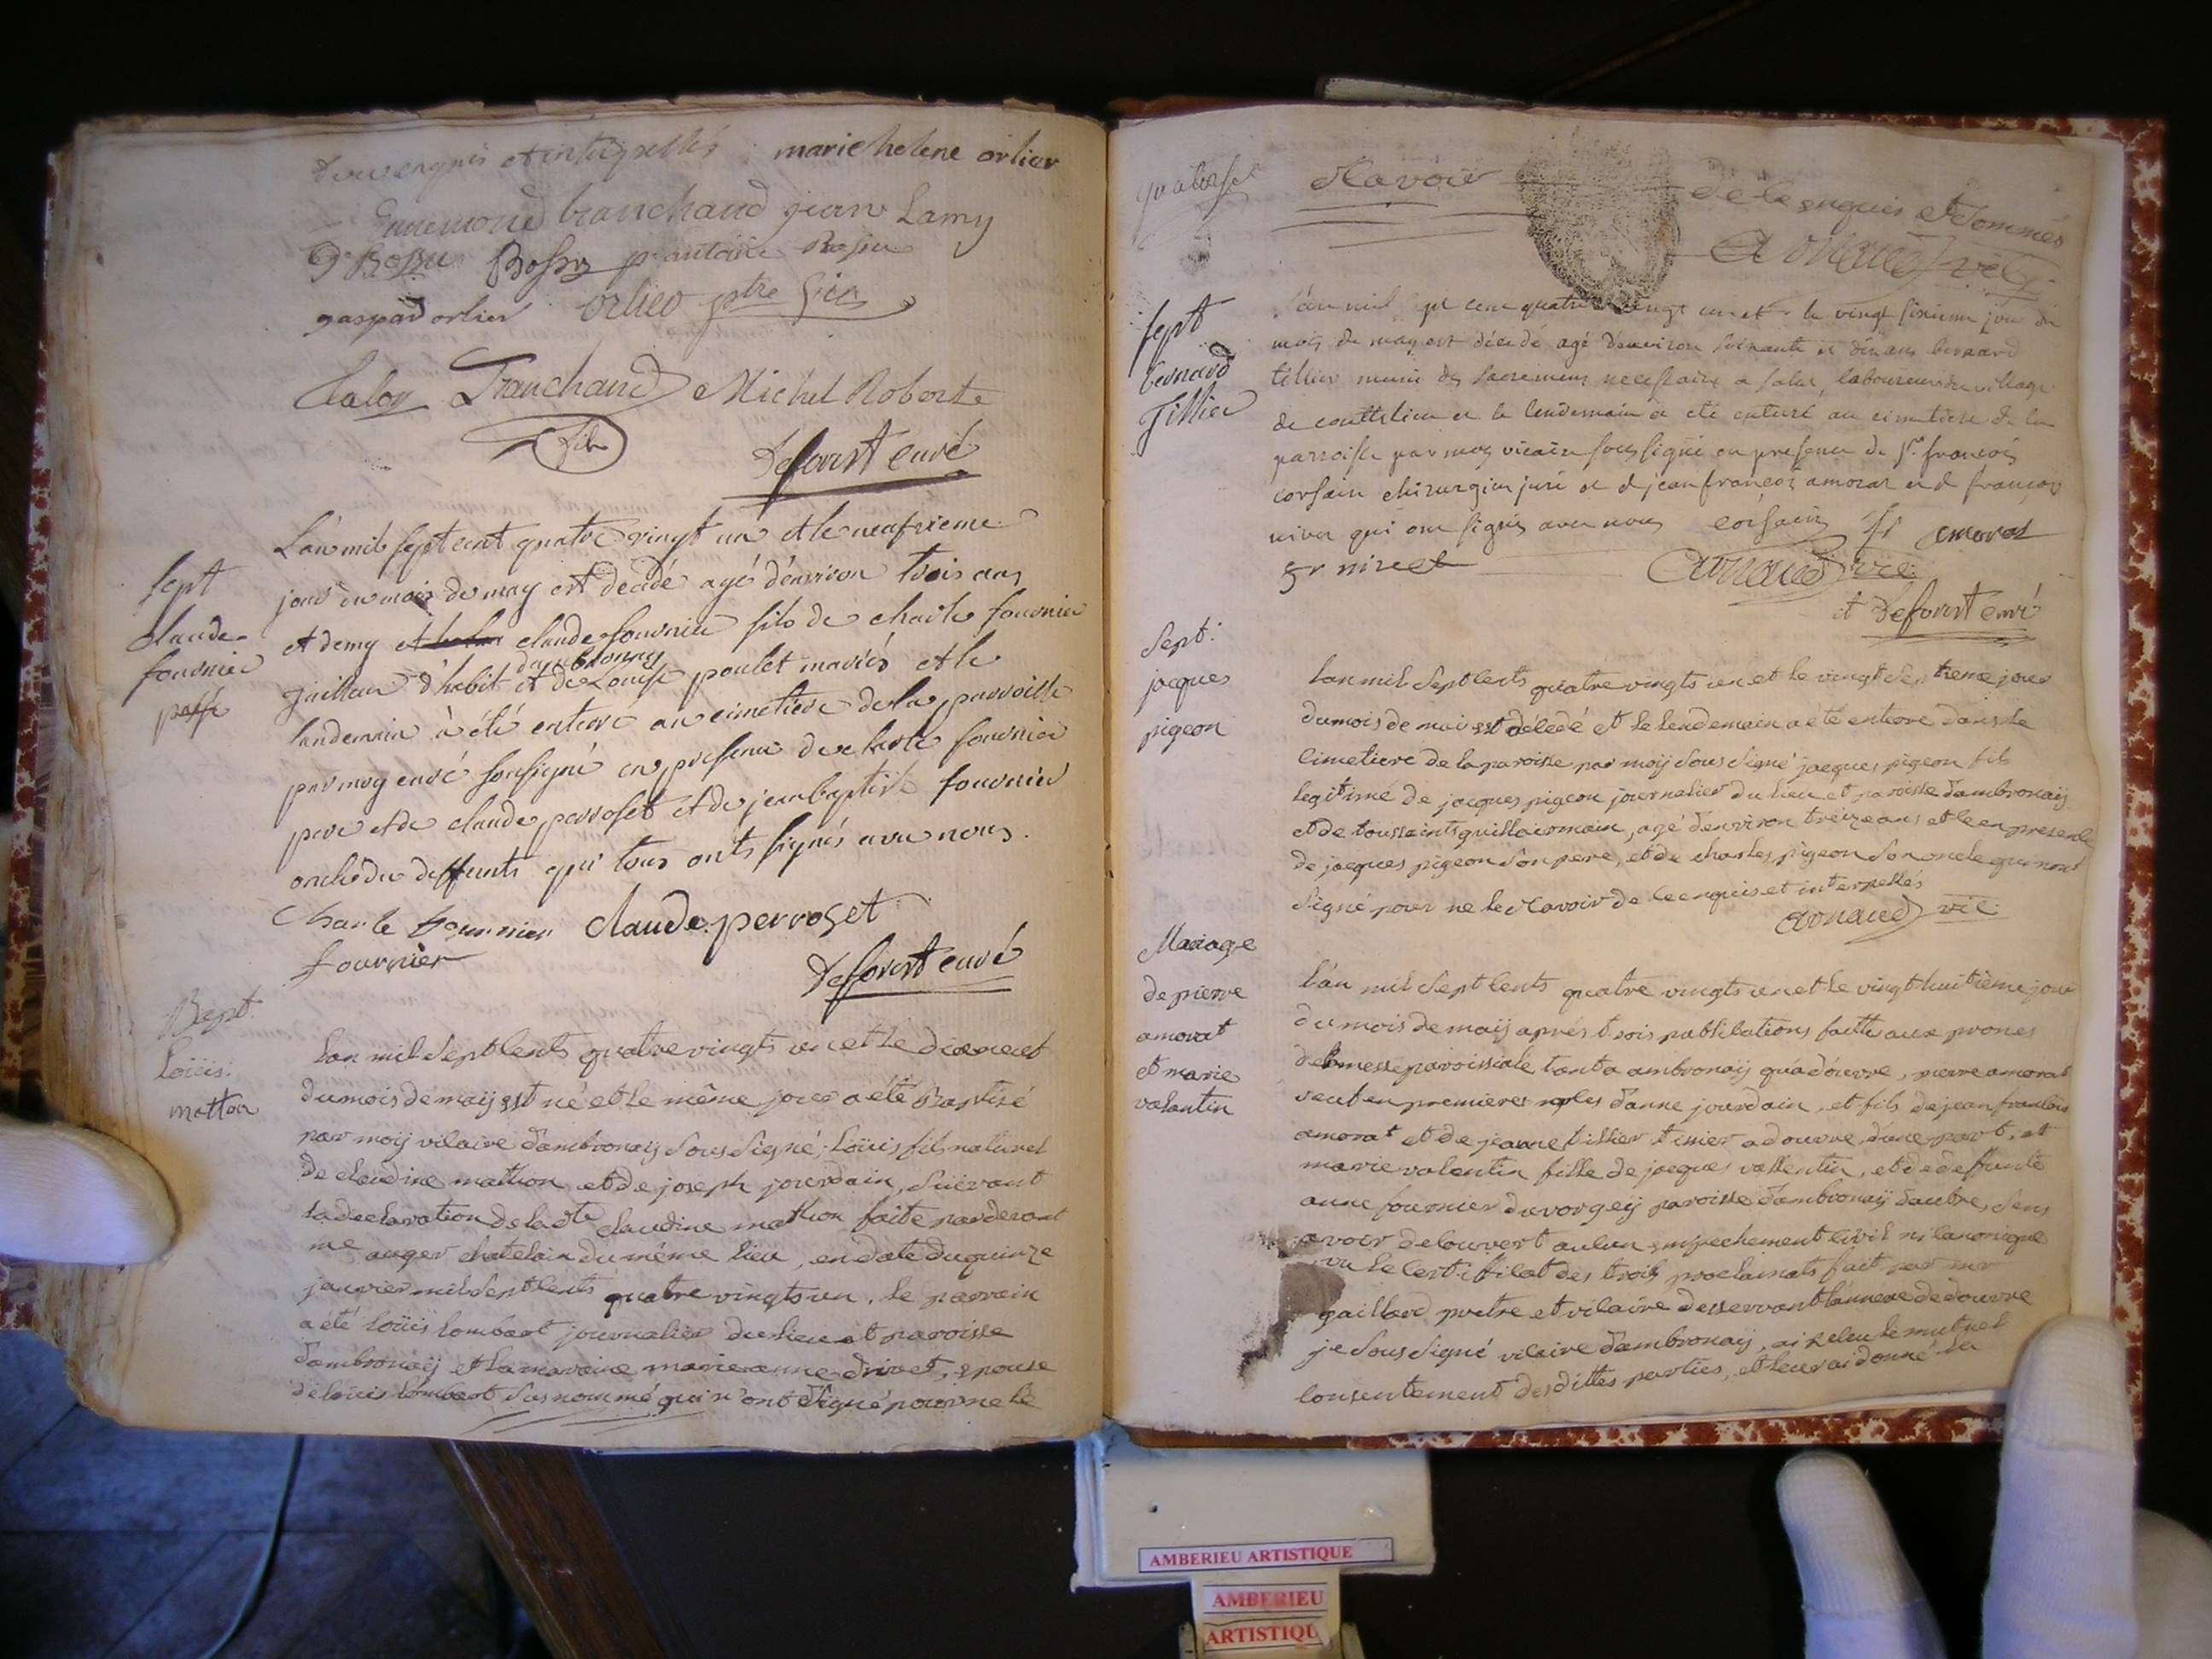 de ce enquis et interpellés marie helene orlier
Ennemond branchand jean Lamy
Bossu Bossy antoine Bossu
gaspard orlier orlier ptre
Tranchand Michel Roberte
fils
Deforest curé
sept
Claude
fournier
L'an mil sept cent quatre vingt un et le neufvieme
jour du mois de may est decedé agé d'environ trois ans
et demy claude fournier fils de charle fournier
tailleur d'habit dambronay et de Louise poulet mariés et le
landemain à été enterré au cimetiere de la parroisse
par moy curé soussigné en presence de charle fournier
pere et de claude perroset et de jean baptiste fournier
oncle du deffunts qui tous onts signés avec nous.
Charle fournier claude perroset
fournier
Deforest curé
Bapt.
Loüis.
matton
Lan mil Sept Cents quatre vingts un et Le dixneuf
du mois de maij est né et Le même jour a été Baptisé
par moij vicaire d'ambronaij Sous Signé; Loüis fils naturel
de claudine mathon et de joseph jourdain, Suivant
La declaration de la dte claudine mathon faite par devant
me auger chatelain du même lieu, en date du quinze
janvier mil Sept Cents quatre vingts un, Le parrain
a été Loüis Lombart journalier du lieu et paroisse
d'ambronaij et La maraine marie anne drivet, epouse
de Loüis Lombart Susnommé qui n'ont Signé pour ne Le
Scavoir de Ce enquis et Sommés
Arnaud vic.
sept
bernard
Tillier
L'an mil sept cent quatre vingt un et le vingt sixieme jour du
mois de may est décedé agé d'environ soixante et dix ans bernard
tillier muni des sacremens necessaires a salut, laboureur du village
de couttelieu et le lendemain a eté enterré au cimetiere de la
parroisse par moy vicaire soussigné en presence de sr. françois
corsain chirurgien juré et d jean françois amorat et d françois
nivet qui ont signés avec nous corsain amorat
fr nivet
Arnaud vic.
et Deforest curé
Sept:
jacques
pigeon
Lan mil Sept Cents quatre vingts un et Le vingt Septieme jour
du mois de mai est décedé et Le Lendemain a eté enterré dans Le
Cimetiere de La paroisse par moij Sous Signé jacques pigeon fils
legitime de jacques pigeon journalier du Lieu et paroisse d'ambronaij
et de toussainte guillaermain, agé d'environ treize ans et Le en presence
de jacques pigeon Son pere, et de charles pigeon Son oncle qui n'ont
Signé pour ne Le Scavoir de Ce enquis et interpellés
Arnaud vic.
Mariage
de pierre
amorat
et marie
valantin
L'an mil Sept Cents quatre vingts un et Le vingt huitième jour
du mois de maij aprés trois publications faitte aux prones
de La messe paroissiale tant a ambronaij qu'a douvre, pierre amorat
veuf en premieres noples d'anne jourdain, et fils de jean francois
amorat et de jeanne tillier tissier a douvre, d'une part, et
marie valentin fille de jacques vallentin, et de deffunte
anne fournier du vorgeij paroisse d'ambronaij d'autre, Sans
avoir decouvert aulun empechement Civil ni Canonique
vu Le Certificat des trois proclamats fait par mr
gaillard pretre et vicaire desservant L'annexe de douvre
je Sous Signé vicaire d'ambronaij, ai recleu Le mutuel
Consentement des dittes parties, et Leur ai donné La
AMBERIEU ARTISTIQUE
AMBERIEU
ARTISTIQU